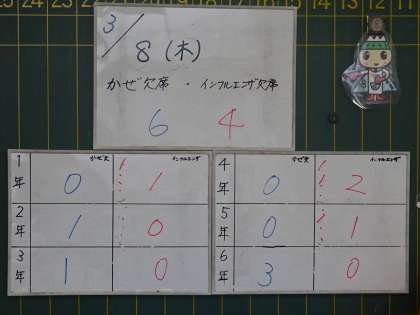 3/8(木)
かぜ欠席・インフルエンザ欠席
6 4
かぜ欠 インフルエンザ
1年 0 1
2年 1 0
3年 1 0
かぜ欠 インフルエンザ
4年 0 2
5年 0 1
6年 3 0